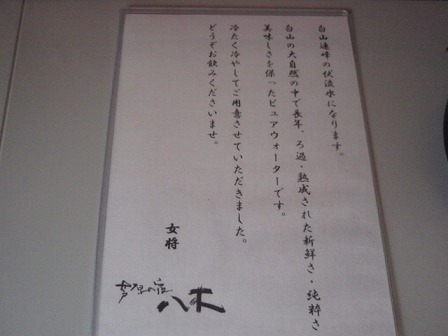 白山連峰の伏流水になります。
白山の大自然の中で長年、ろ過・熟成された新鮮さ・純粋さ
美味しさを保ったピュアウォーターです。
冷たく冷やしてご用意させていただきました。
どうぞお飲みくださいませ。
女将
芦原の宿
八木